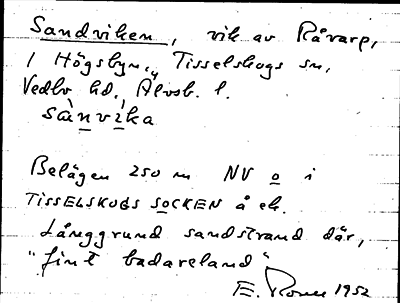 Sandviken, vik av Råvarp,
i Högsbyn, Tisselskogs sn,
Vedbo hd, Älvsb. l.
sànvika
Belägen 250 m NV o i
TISSELSKOGS SOCKEN å ek.
Långgrund sandstrand där,
"fint badareland"
E. 1952